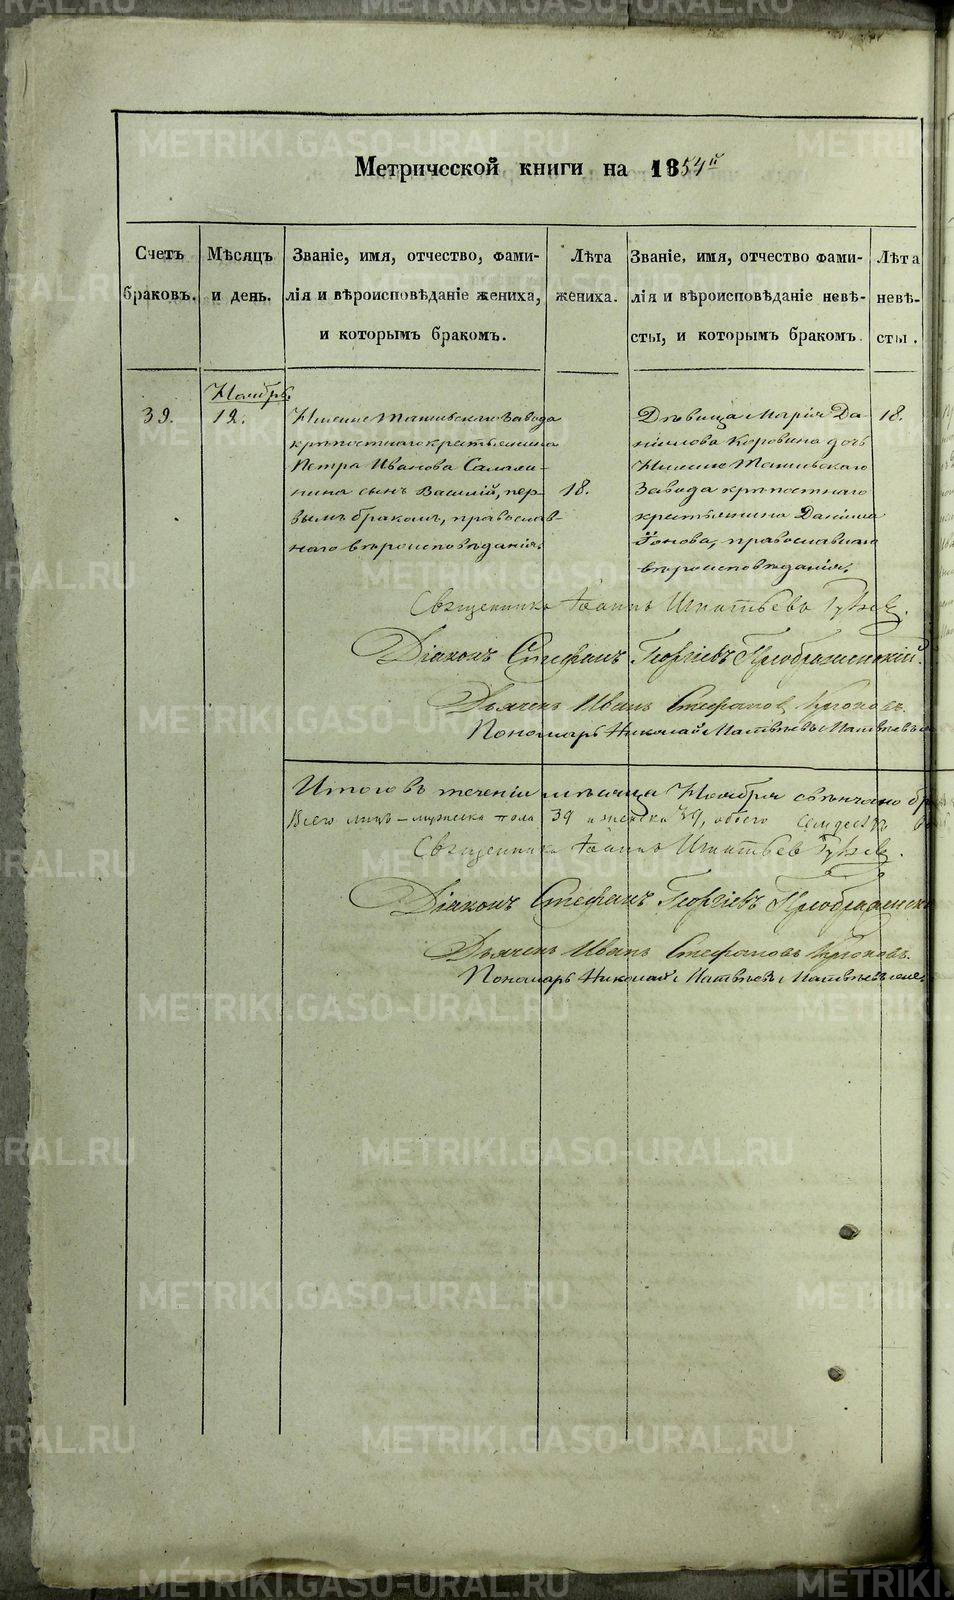 Метрической книги на 1854й
Счетъ браковъ.
Мѣсяцъ и день.
Званіе, имя, отчество, фами-
лія и вѣроисповѣданіе жениха,
и которымъ бракомъ.
Лѣта
жениха.
Званіе, имя, отчество фами-
лія и вѣроисповѣданіе невѣ-
сты, и которымъ бракомъ.
Лѣта
невѣ-
сты.
39.
Ноябрь.
12.
Нижне Тагильскаго Завода
крѣпостнаго крестьянина
Петра Иванова
сынъ Василій, пер-
вымъ бракомъ, православ-
наго вѣроисповѣданія.
18.
Дѣвица Марія Да
ніилова Коровина дочь
Нижне Тагильскаго
Завода крѣпостнаго
крестьянина Даніила
православнаго
вѣроисповѣданія.
18.
Священникъ Іоаннъ Игнатьевъ
Діаконъ Стефанъ Георгіевъ Преображенскій.
Дьячекъ Иванъ Стефановъ
Пономарь Николай Матвѣевъ
Итого въ теченіи мѣсяца Ноября свѣнчано
Всего лицъ – мужеска пола 39 и женска 39, обоего
Священникъ Іоаннъ Игнатьев
Діаконъ Стефанъ Георгіевъ
Дьячекъ Иванъ Стефановъ
Пономарь Николай Матвѣевъ
METRIKI.GASO-URAL.RU